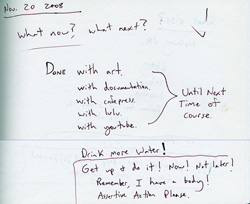 Nov. 20 2008
what now? what next?
DONE with art.
with documentation.
with cafepress.
with lulu.
with youtube.
Until Next
Time of
course.
Drink more water!
Get up & do it! Now! Not later!
Remember, I have a body!
Assertive Action Please.